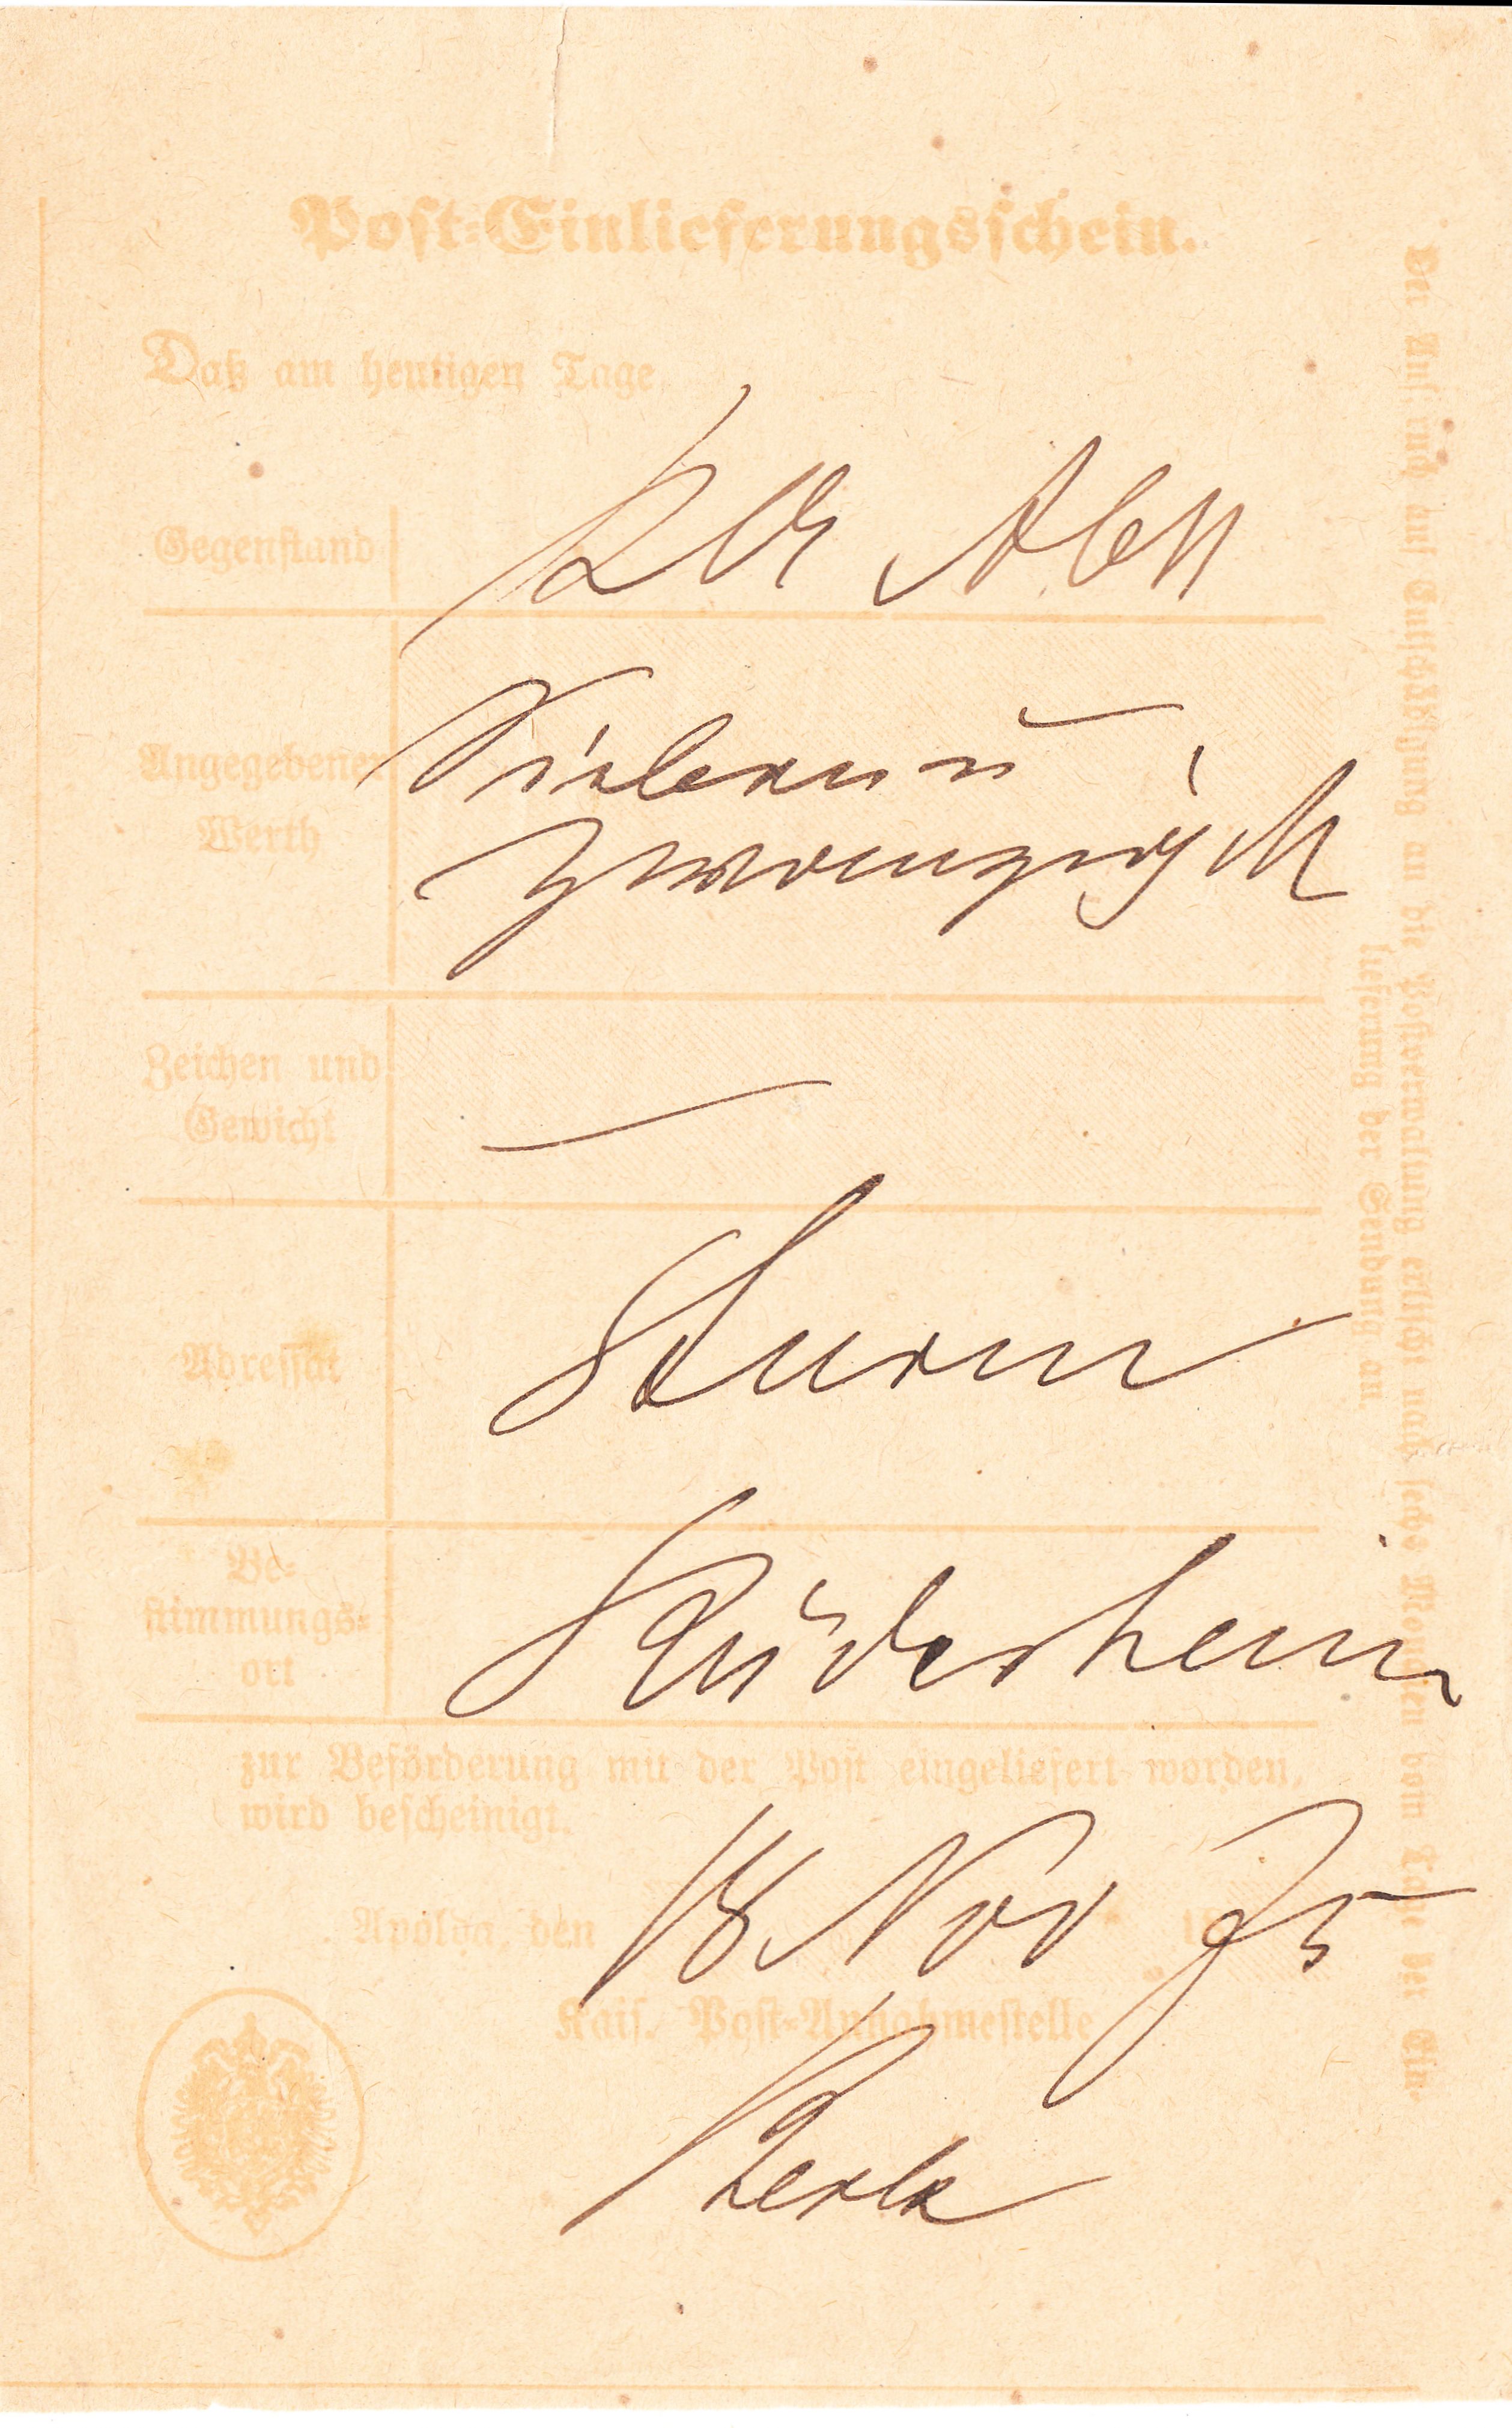 Post-Einlieferungsschein.
Daß am heutigen Tage
Gegenstand
Angegebener
Werth
Sieben u
zwanzig M
Zeichen und
Gewicht
—
Adressat
Sturm
Be-
stimmungs-
ort
Rüdesheim
zur Beförderung mit der Post eingeliefert worden,
wird bescheinigt.
Apolda, den 18 Nov 75
Kais. Post-Annahmestelle
Der Anspruch auf Entschädigung an die Postverwaltung erlischt nach sechs Monaten vom Tage der Ein-
lieferung der Sendung an